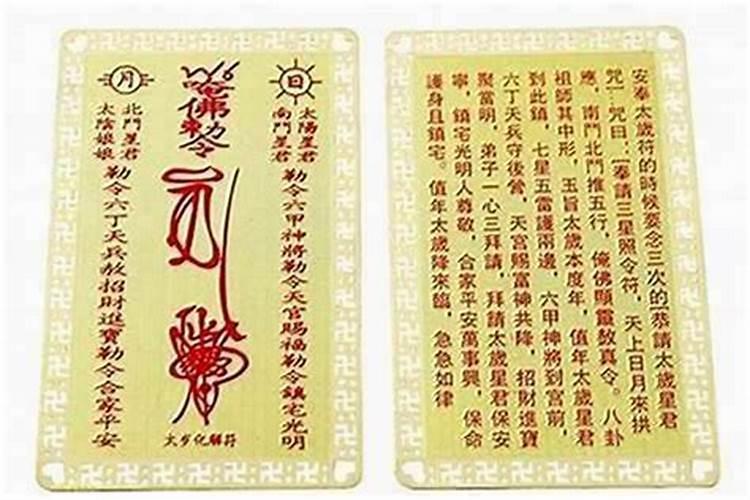 日
太陽星君
南鬥星君
勒令六甲神將勒令天官賜福勒令鎮宅光明
佛勅令
太歲化解符
月
北鬥星君
太陰娘娘
勒令六丁天兵敖招財進寶勒令合家平安
安奉太歲符的時候要念三次的[恭請太歲星君
咒]:咒曰:[奉請三星照令符,天上日月來拱
應,南鬥北鬥推五行,俺佛顯靈敖真令。八卦
祖師其中形,玉旨太歲本度年,值年太歲星君
到此鎮,七星五雷護兩邊,六甲神將到宮前,
六丁天兵守後營,天宮賜富神共降,招財進寶
聚當明,弟子一心三拜請,拜請太歲星君保安
寧,鎮宅光明人尊敬,合家平安萬事興,保命
護身且鎮宅。值年太歲降來臨,急急如律